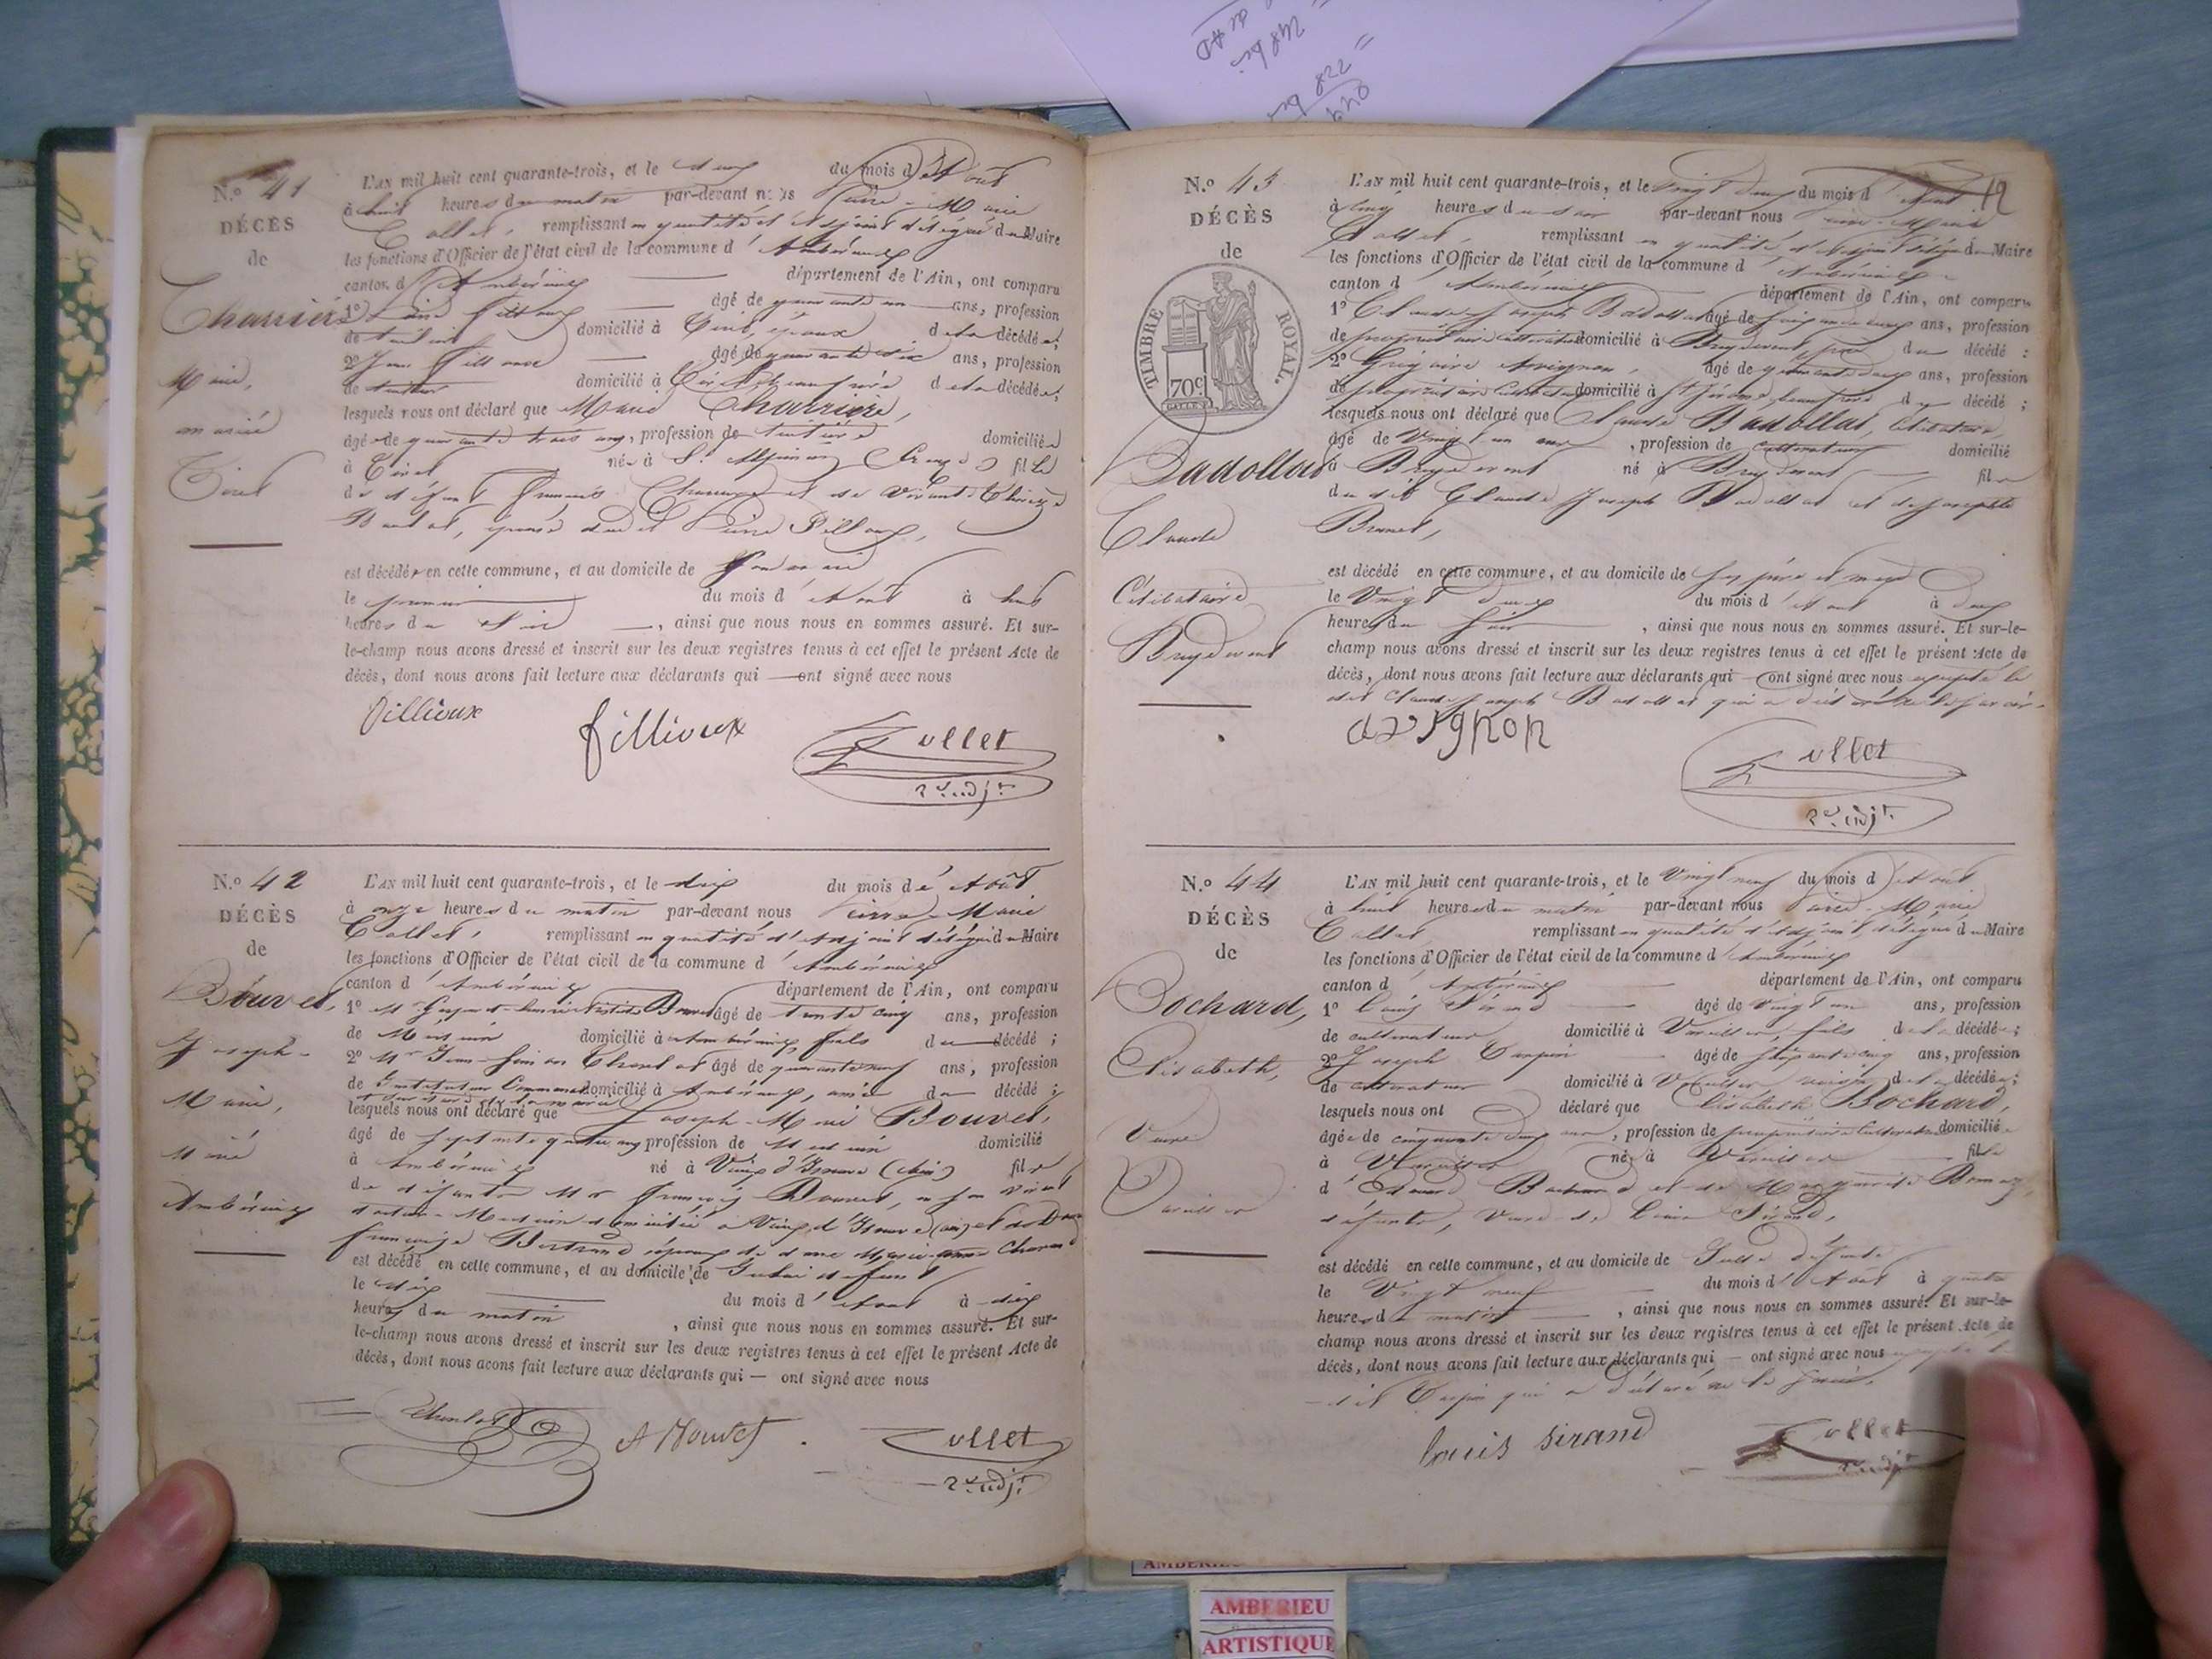 N.º 41
DÉCÈS
de
Charrière
Marie,
mariée
Tiret
L'AN mil huit cent quarante-trois, et le deux du mois d'Août
à huit heures du matin par-devant nous Pierre-Marie
Collet, remplissant en qualité d'Adjoint délégué du Maire
les fonctions d'Officier de l'état civil de la commune d'Ambérieux
canton d'Ambérieux département de l'Ain, ont comparu
1º âgé de quarante un ans, profession
de domicilié à Tiret, époux de la décédée;
2º Jean âgé de quarante six ans, profession
de domicilié à Tiret, beaufrère de la décédée;
lesquels nous ont déclaré que Marie Charrière,
âgée de quarante trois ans, profession de domiciliée
à Tiret née à St. (Creuse) fille
de défunt François et de vivante
épouse dudit Pierre
est décédée en cette commune, et au domicile de son mari
le premier du mois d'Août à huit
heures du soir, ainsi que nous nous en sommes assuré. Et sur-
le-champ nous avons dressé et inscrit sur les deux registres tenus à cet effet le présent Acte de
décès, dont nous avons fait lecture aux déclarants qui — ont signé avec nous
fillioux fillioux Collet
2e. adjt.
N.º 42
DÉCÈS
de
Bouvet,
Joseph-
Marie,
Marié
Ambérieux
L'AN mil huit cent quarante-trois, et le dix du mois d'Août
à onze heures du matin par-devant nous Pierre-Marie
Collet, remplissant en qualité d'Adjoint délégué du Maire
les fonctions d'Officier de l'état civil de la commune d'Ambérieux
canton d'Ambérieux département de l'Ain, ont comparu
1º Mr Bouvet âgé de trente cinq ans, profession
de Médecin domicilié à Ambérieux, fils du décédé;
2º Mr Jean âgé de quarante neuf ans, profession
de Instituteur Communal domicilié à Ambérieux, ami du décédé;
lesquels nous ont déclaré que Joseph-Marie Bouvet,
âgé de septante quatre ans profession de Médecin domicilié
à Ambérieux né à Vieux d'Izenave (Ain) fils
de défunts Mr François Bouvet, en son vivant
docteur-Médecin domicilié à Vieux d'Izenave (Ain) et de Dame
françoise Bertrand époux de dame Marie anne
est décédé en cette commune, et au domicile de dudit défunt
le dix du mois d'Août à dix
heures du matin, ainsi que nous nous en sommes assuré. Et sur-
le-champ nous avons dressé et inscrit sur les deux registres tenus à cet effet le présent Acte de
décès, dont nous avons fait lecture aux déclarants qui — ont signé avec nous
A Bouvet Collet
2e. adjt.
12
N.º 43
DÉCÈS
de
TIMBRE ROYAL.
70c
Badollat
Claude
Célibataire
Breydevent
L'AN mil huit cent quarante-trois, et le vingt deux du mois d'Août
à cinq heures du soir par-devant nous Pierre-Marie
Collet, remplissant en qualité d'Adjoint délégué du Maire
les fonctions d'Officier de l'état civil de la commune d'Ambérieux
canton d'Ambérieux département de l'Ain, ont comparu
1º Claude Joseph Badollat âgé de ans, profession
de propriétaire cultivateur domicilié à Breydevent, père du décédé;
2º Grégoire Avignon, âgé de quarante deux ans, profession
de propriétaire cultivateur domicilié à St Jérôme, beaufrère du décédé;
lesquels nous ont déclaré que Claude Badollat, célibataire
âgé de vingt un ans, profession de cultivateur domicilié
à Breydevent né à Breydevent fils
du dit Claude Joseph Badollat et de Josephte
Brunet,
est décédé en cette commune, et au domicile de ses père et mère
le Vingt deux du mois d'Août à deux
heures du soir, ainsi que nous nous en sommes assuré. Et sur-le-
champ nous avons dressé et inscrit sur les deux registres tenus à cet effet le présent Acte de
décès, dont nous avons fait lecture aux déclarants qui — ont signé avec nous excepté le
dit Claude Joseph Badollat qui a déclaré ne le savoir.
avignon Collet
2e. adjt.
N.º 44
DÉCÈS
de
Bochard,
Elisabeth,
Veuve
Vareilles
L'AN mil huit cent quarante-trois, et le Vingt neuf du mois d'Août
à huit heures du matin par-devant nous Pierre-Marie
Collet, remplissant en qualité d'Adjoint délégué du Maire
les fonctions d'Officier de l'état civil de la commune d'Ambérieux
canton d'Ambérieux département de l'Ain, ont comparu
1º Louis Sirand âgé de vingt un ans, profession
de cultivateur domicilié à Vareilles, fils de la décédée;
2º Joseph Carpin âgé de soixante cinq ans, profession
de cultivateur domicilié à Vareilles, voisin de la décédée;
lesquels nous ont déclaré que Elisabeth Bochard,
âgée de cinquante deux ans, profession de propriétaire cultivatrice domiciliée
à Vareilles née à Vareilles fille
d' Bochard et de Marguerite
défunts, Veuve de Sirand,
est décédée en cette commune, et au domicile de ladite défunte
le Vingt neuf du mois d'Août à quatre
heures du matin, ainsi que nous nous en sommes assuré. Et sur-le-
champ nous avons dressé et inscrit sur les deux registres tenus à cet effet le présent Acte de
décès, dont nous avons fait lecture aux déclarants qui — ont signé avec nous
dit Carpin qui a déclaré ne le savoir.
louis sirand Collet
2e. adjt.
AMBERIEU
AMBERIEU
ARTISTIQUE